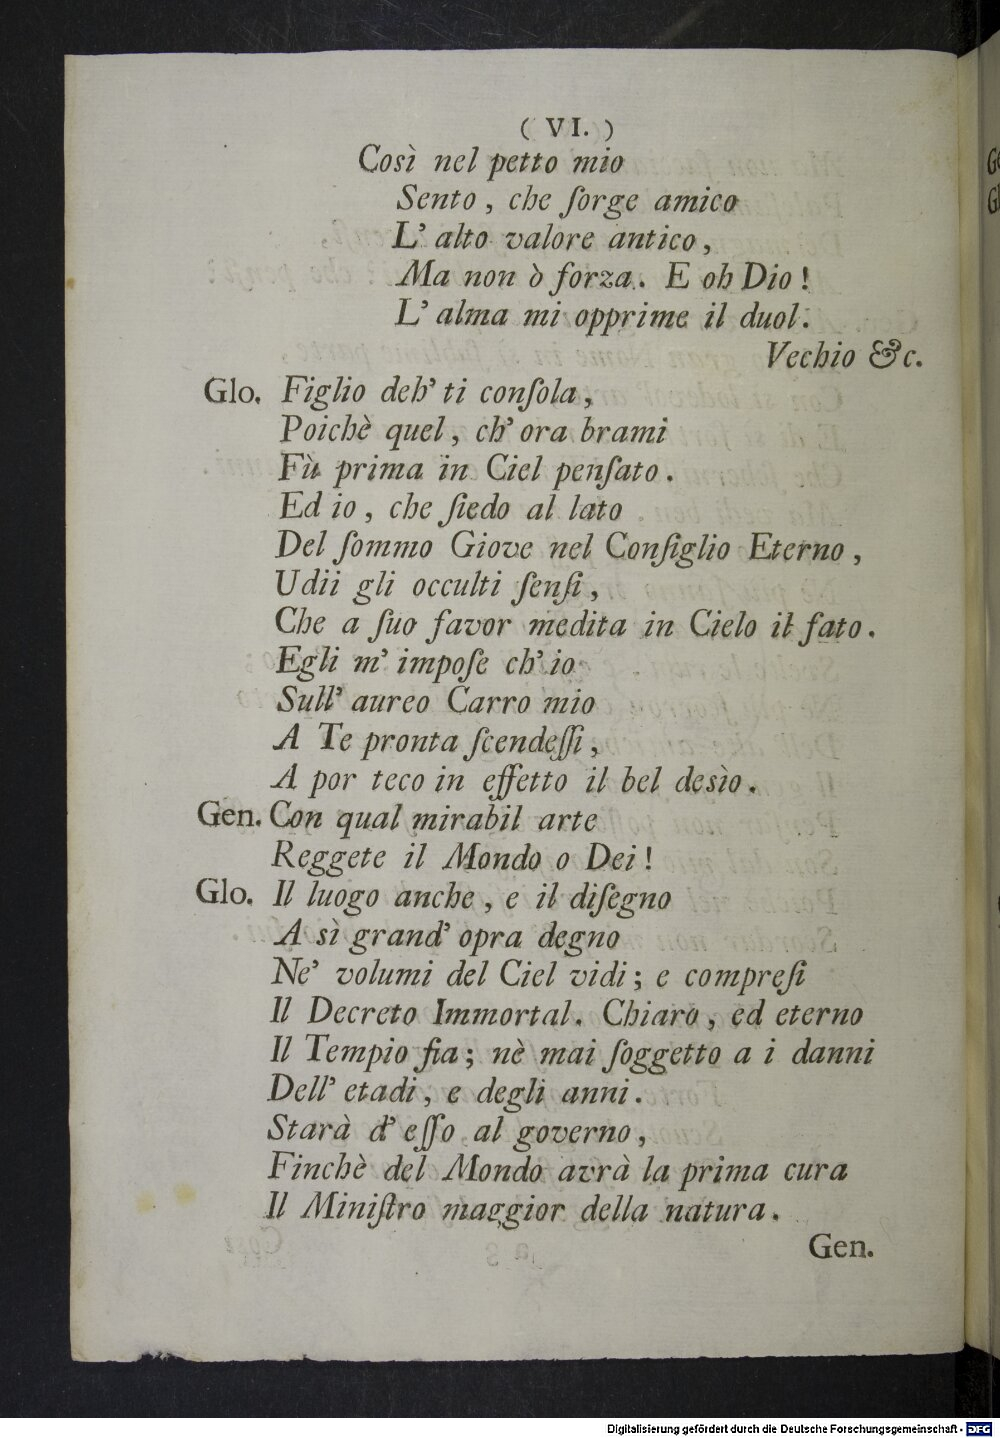 ( VI. )
Così nel petto mio
Sento , che ſorge amico
L’ alto valore antico ,
Ma non ò forza . E oh Dio !
L’ alma mi opprime il duol .
Vechio &c.
Glo. Figlio deh’ ti conſola ,
Poichè quel , ch’ ora brami
Fù prima in Ciel penſato .
Ed io , che ſiedo al lato
Del ſommo Giove nel Conſiglio Eterno ,
Udii gli occulti ſenſi ,
Che a ſuo favor medita in Cielo il fato .
Egli m’ impoſe ch’ io
Sull’ aureo Carro mio
A Te pronta ſcendeſſi ,
A por teco in effetto il bel desìo .
Gen. Con qual mirabil arte
Reggete il Mondo o Dei !
Glo. Il luogo anche , e il diſegno
A sì grand’ opra degno
Ne’ volumi del Ciel vidi ; e compreſi
Il Decreto Immortal . Chiaro , ed eterno
Il Tempio fia ; nè mai ſoggetto a i danni
Dell’ etadi , e degli anni .
Starà d’ eſſo al governo ,
Finchè del Mondo avrà la prima cura
Il Miniſtro maggior della natura .
Gen.
Digitalisierung gefördert durch die Deutsche Forschungsgemeinschaft - DFG